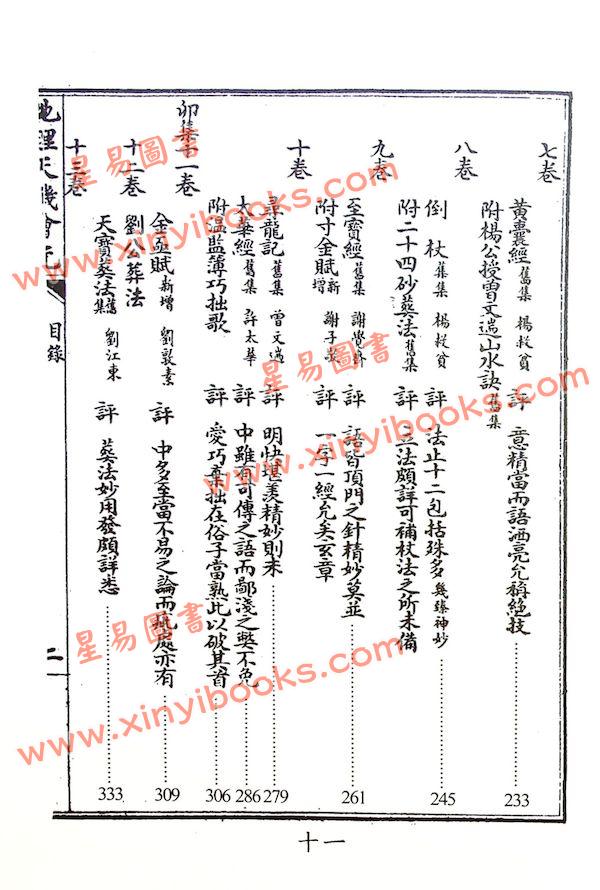 七卷
黃囊經 舊集 楊救貧 評 意精當而語洒亮允稱絕技 233
附楊公授曾文遄山水訣 舊集
八卷
倒杖 舊集 楊救貧 評 法止十二包括殊多 幾臻神妙 245
附二十四砂葬法 舊集 評 立法頗詳可補杖法之所未備
九卷
至寶經 舊集 謝覺齋 評 語皆頂門之針精妙莫並 261
附寸金賦 新增 謝子 評 一字一經允矣玄章
十卷
尋龍記 舊集 曾文遄 評 明快堪羨精妙則未 279
太華經 舊集 許太華 評 中雖有可傳之語而鄙淺之弊不免 286
附溫監簿巧拙歌 評 愛巧棄拙在俗子當熟此以破其首 306
卯集十一卷
金函賦 新增 劉敦素 評 中多至當不易之論而疵處亦有 309
十二卷
劉公葬法
十三卷
天寶葬法 舊集 劉江東 評 葬法妙用發頗詳悉 333
地理天機會元
目錄
二
十一
星易圖書
www.xinyibooks.com
星易圖書
www.xinyibooks.com
星易圖書
www.xinyibooks.com